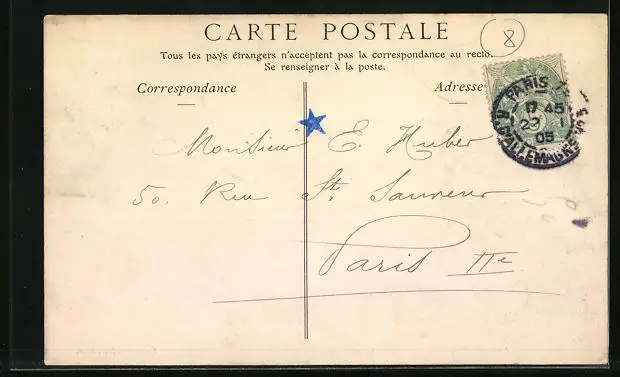 CARTE POSTALE
8
Tous les pays étrangers n'acceptent pas la correspondance au recto.
Se renseigner à la poste.
Correspondance
Adresse
PARIS
17 45
23 1
05
R. D'ALLEMAGNE
Monsieur E. Huber
50. Rue St. Sauveur
Paris IIe